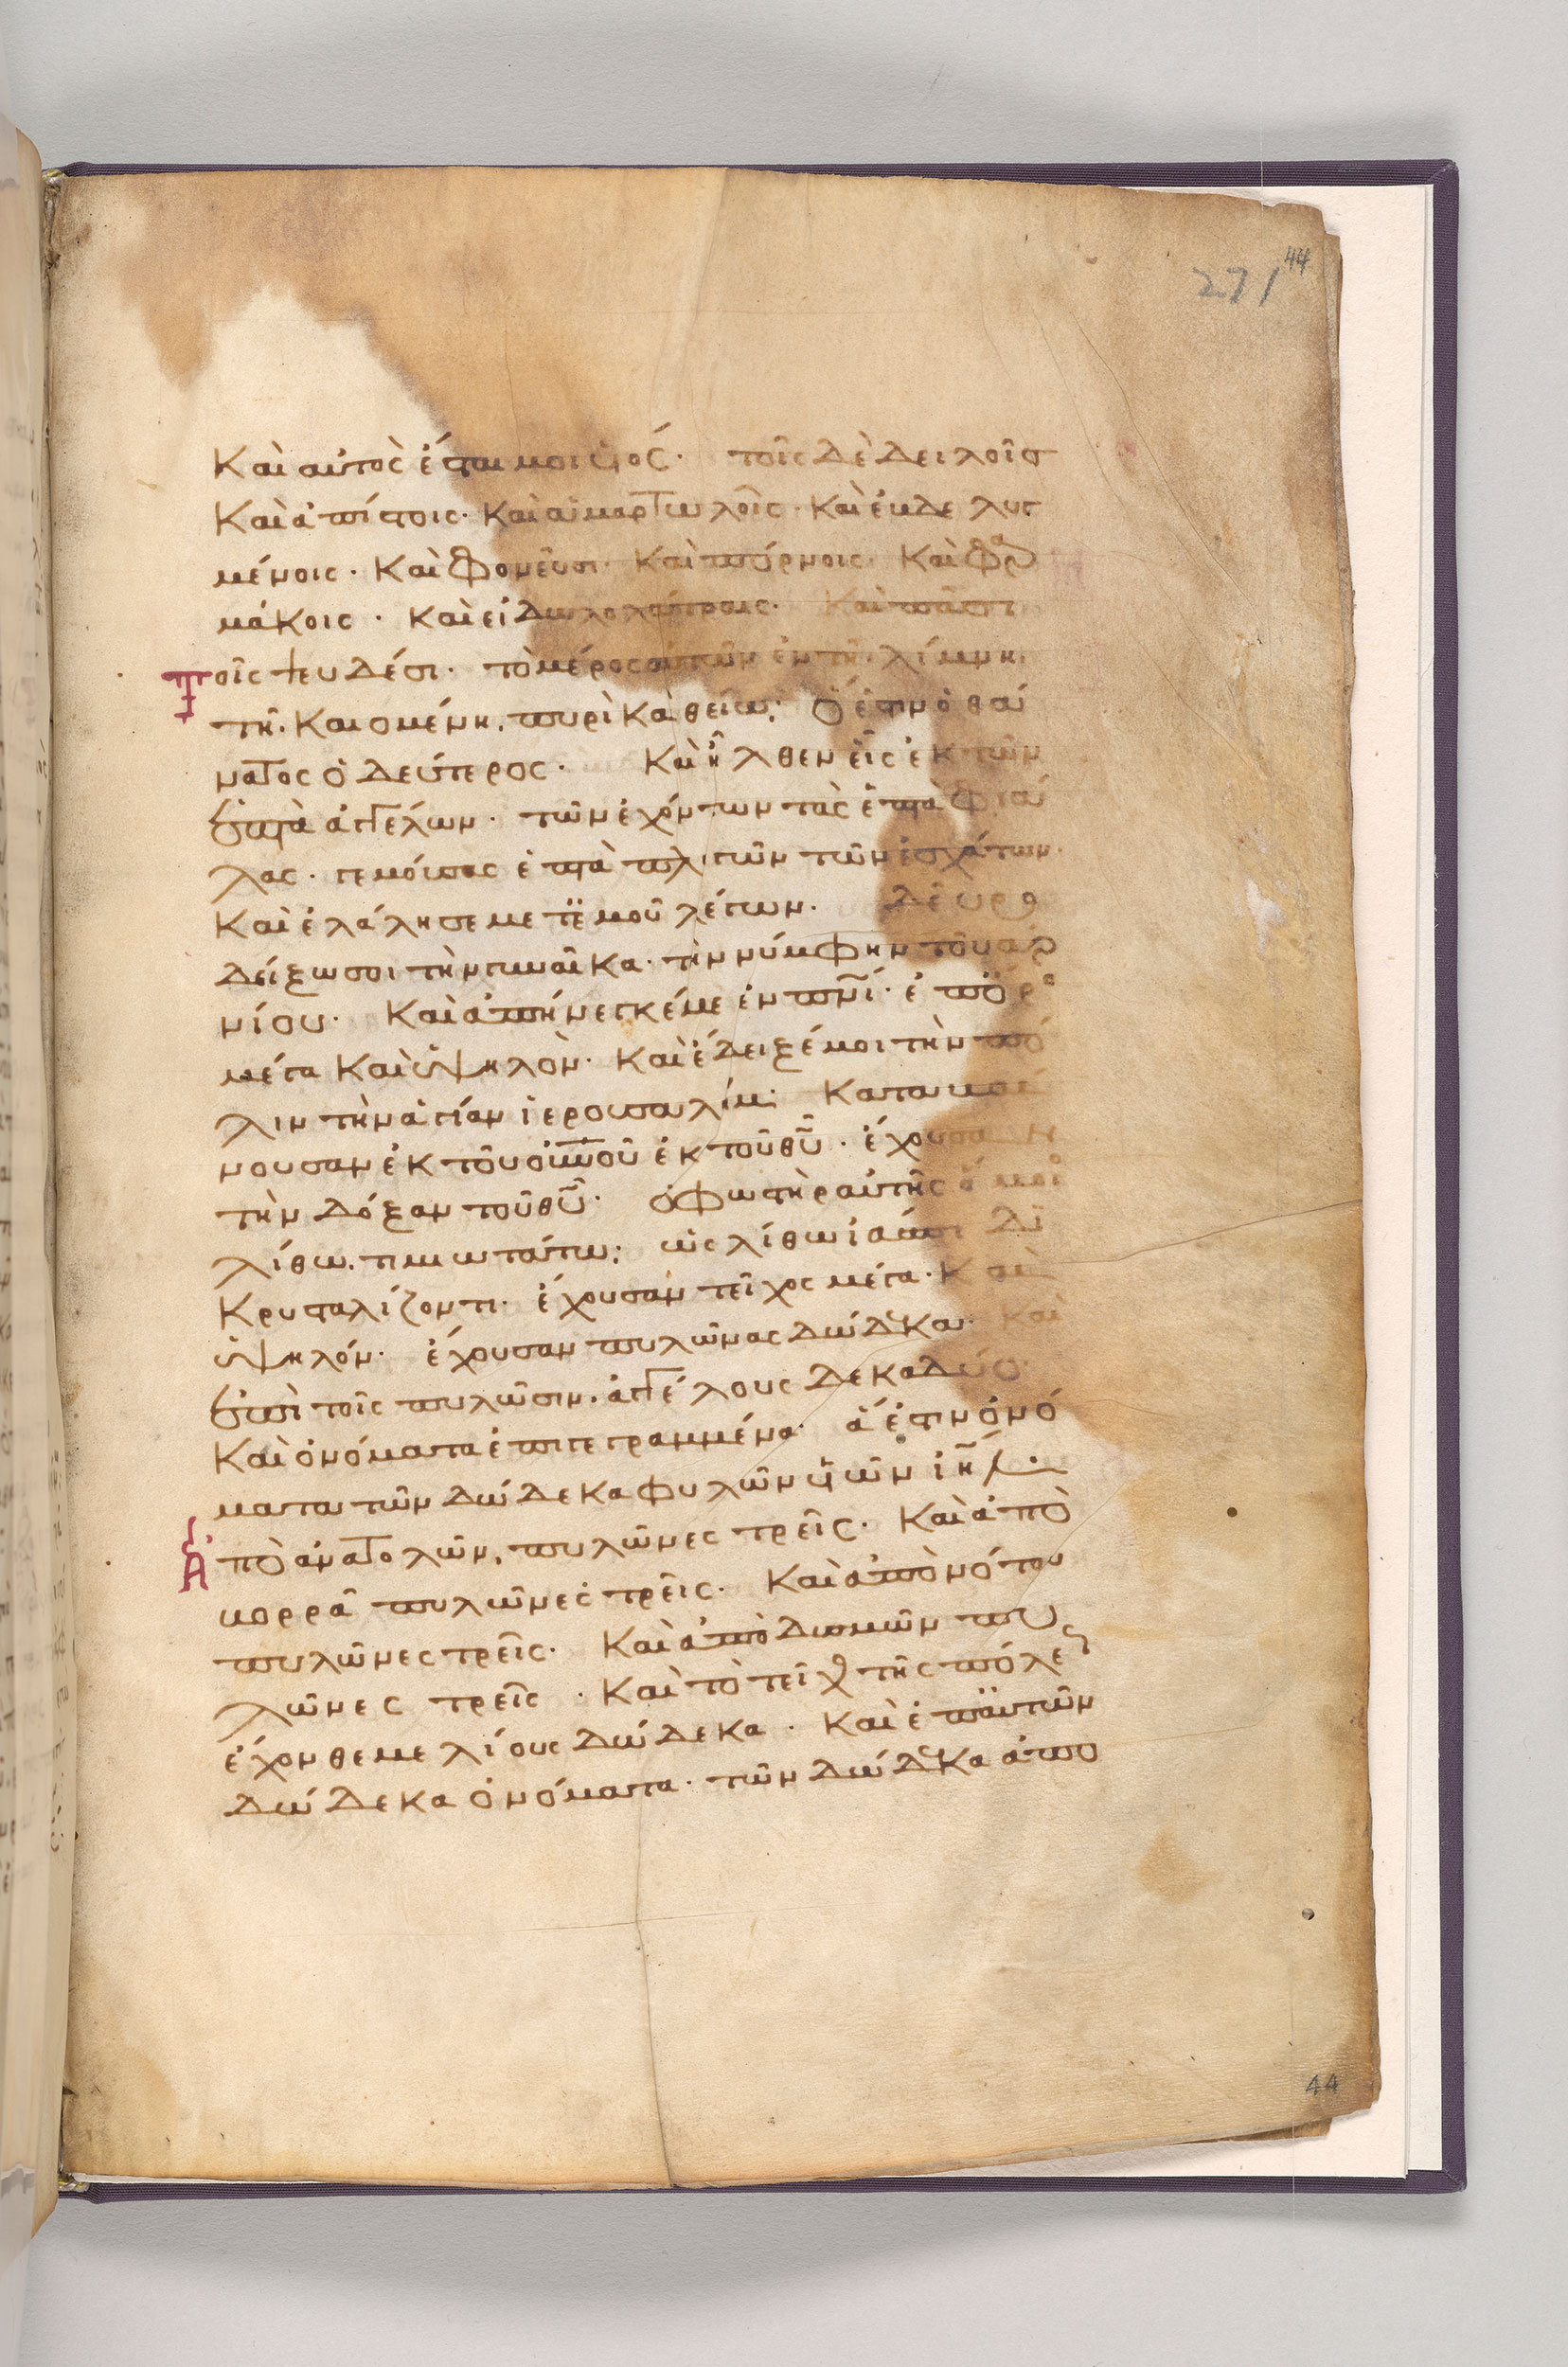 271 44
Καὶ αὐτὸς ἔσται μοι υἱός· τοῖς δὲ δειλοῖσ
Καὶ ἀπίστοις· Καὶ ἁμαρτωλοῖς· Καὶ ἐβδελυγ
μένοις· Καὶ φονεῦσι· Καὶ πόρνοις· Καὶ φαρ
μάκοις· Καὶ εἰδωλολάτραις· Καὶ πᾶσι
τοῖς ψευδέσι· τὸ μέρος αὐτῶν ἐν τῆ λίμνη
τῆ Καιομένη πυρὶ Καὶ θείω· ὅ ἐστιν ὁ θά
νατος ὁ δεύτερος· Καὶ ἦλθεν εἷς ἐκ τῶν
ἑπτὰ ἀγγέλων· τῶν ἐχόντων τὰς ἑπτὰ φιά
λας· γεμούσας ἑπτὰ πληγῶν τῶν ἐσχάτων·
Καὶ ἐλάλησε μετ' ἐμοῦ λέγων· δεῦρο
δείξω σοι τὴν γυναῖκα· τὴν νύμφην τοῦ ἀρ
νίου· Καὶ ἀπήνεγκέ με ἐν πνι· ἐπ' ὄρος
μέγα Καὶ ὑψηλὸν· Καὶ ἔδειξέ μοι τὴν πό
λιν τὴν ἁγίαν ἱερουσαλίμ· Καταβαί
νουσαν ἐκ τοῦ οὐνοῦ ἐκ τοῦ θυ· ἔχουσαν
τὴν δόξαν τοῦ θυ· ὁ φωστὴρ αὐτῆς ὅμοιος
λίθω τιμιωτάτω· ὡς λίθω ἰάσπιδι
Κρυσταλίζοντι· ἔχουσαν τεῖχος μέγα· Καὶ
ὑψηλόν· ἔχουσαν πυλῶνας δώδεκα· Καὶ
ἐπὶ τοῖς πυλῶσιν ἀγγέλους δεκαδύο·
Καὶ ὀνόματα ἐπιγεγραμμένα· ἅ ἐστιν ὀνό
ματα τῶν δώδεκα φυλῶν υἱῶν ιηλ·
Ἀπὸ ἀνατολῶν, πυλῶνες τρεῖς· Καὶ ἀπὸ
βορρᾶ πυλῶνες τρεῖς· Καὶ ἀπὸ νότου
πυλῶνες τρεῖς· Καὶ ἀπὸ δυσμῶν πυ
λῶνες τρεῖς· Καὶ τὸ τεῖχος τῆς πόλεως
ἔχον θεμελίους δώδεκα· Καὶ ἐπ' αὐτῶν
δώδεκα ὀνόματα· τῶν δώδεκα ἀπο
44